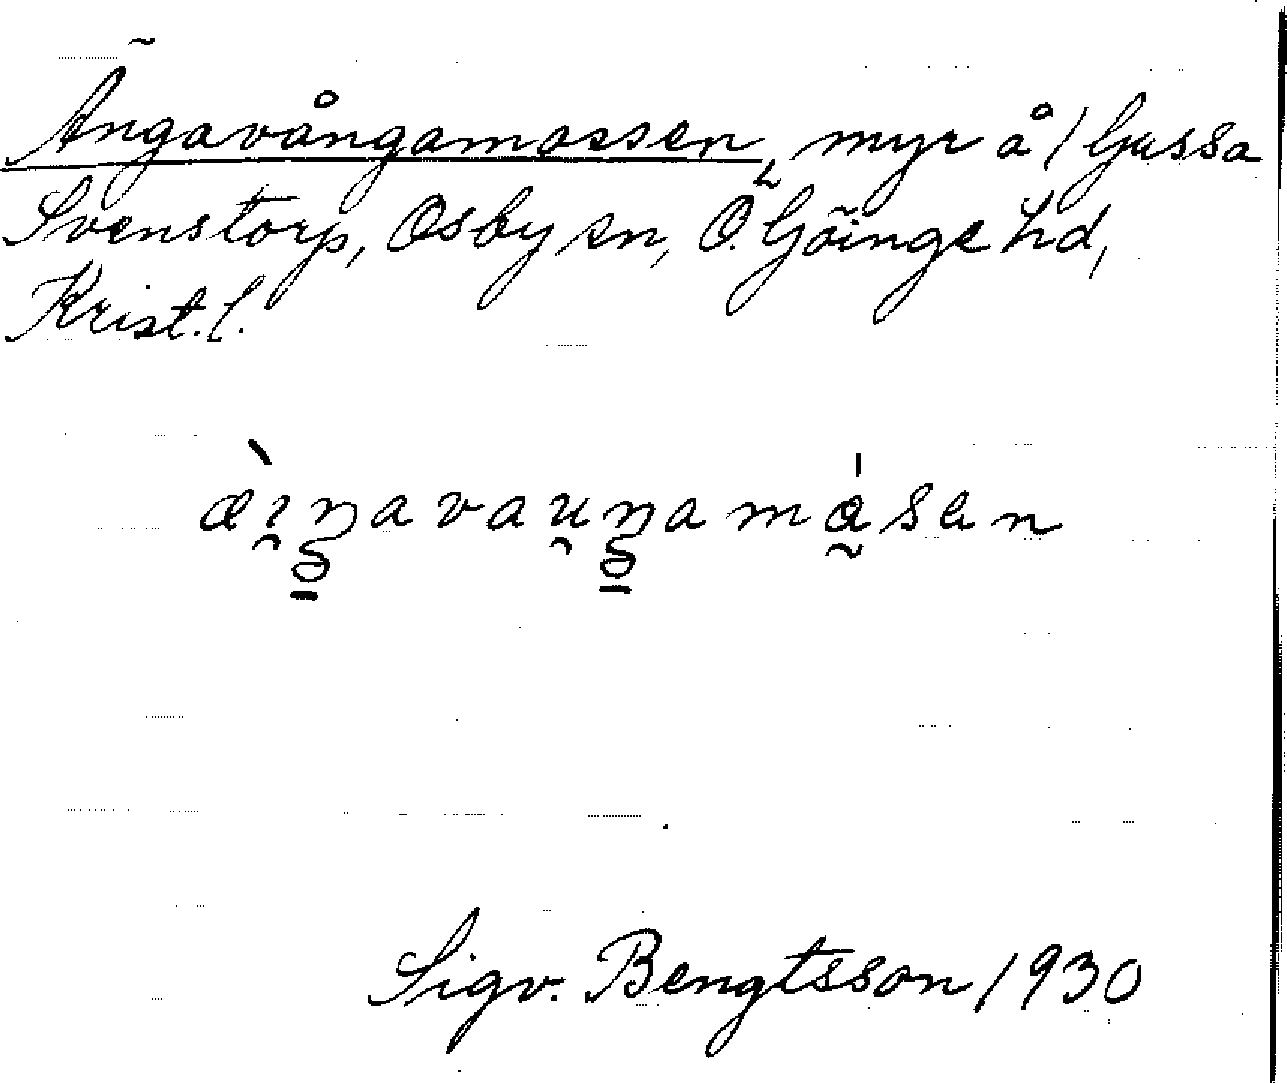 Ängavångamossen, myr å 1 Gussa
Svenstorp, Osby sn, Ö. Göinge hd,
Krist. l.
Sigv. Bengtsson 1930